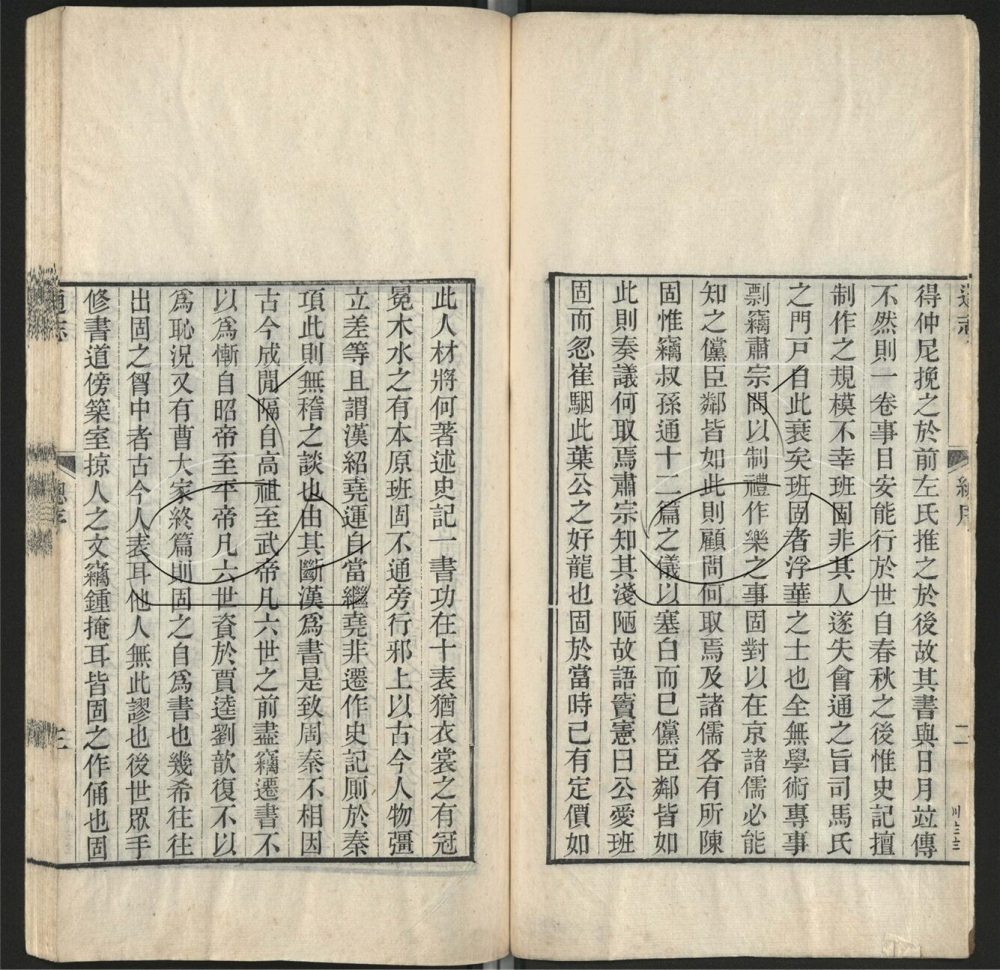 得仲尼挽之於前左氏推之於後故其書與日月竝傳
不然則一卷事目安能行於世自春秋之後惟史記擅
制作之規模不幸班固非其人遂失會通之旨司馬氏
之門戸自此衰矣班固者浮華之士也全無學術專事
剽竊肅宗問以制禮作樂之事固對以在京諸儒必能
知之儻臣鄰皆如此則顧問何取焉及諸儒各有所陳
固惟竊叔孫通十二篇之儀以塞白而已儻臣鄰皆如
此則奏議何取焉肅宗知其淺陋故語竇憲曰公愛班
固而忽崔駰此葉公之好龍也固於當時已有定價如
此人材將何著述史記一書功在十表猶衣裳之有冠
冕木水之有本原班固不通旁行邪上以古今人物彊
立差等且謂漢紹堯運自當繼堯非遷作史記厠於秦
項此則無稽之談也由其斷漢爲書是致周秦不相因
古今成閒隔自高祖至武帝凡六世之前盡竊遷書不
以爲慚自昭帝至平帝凡六世資於賈逵劉歆復不以
爲恥況又有曹大家終篇則固之自爲書也幾希往往
出固之胷中者古今人表耳他人無此謬也後世眾手
修書道傍築室掠人之文竊鍾掩耳皆固之作俑也固
通志
總序
三